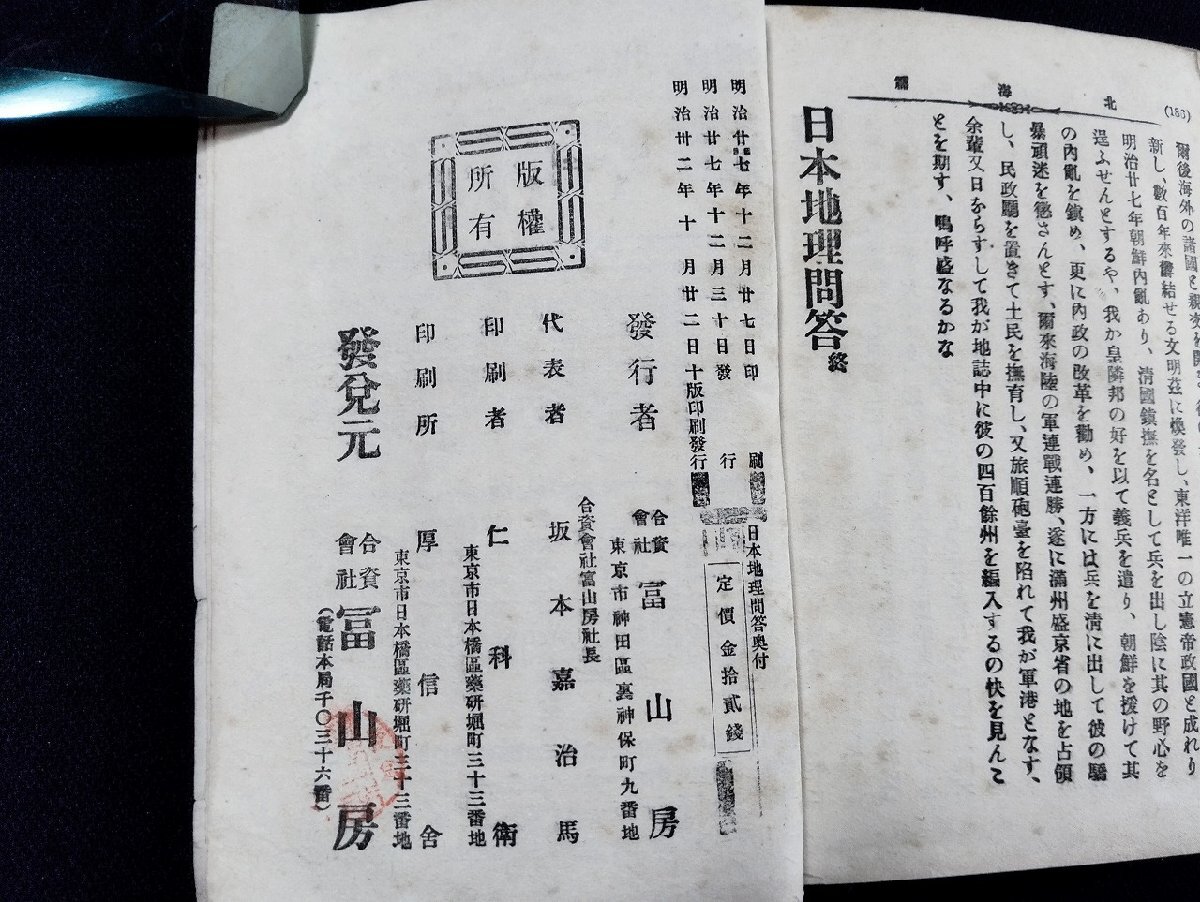 (163)
北海篇
新し、數百年來鬱結せる文明茲に煥發し、東洋唯一の立憲帝政國と成れり
明治廿七年朝鮮内亂あり、清國鎭撫を名として兵を出し陰に其の野心を
逞ふせんとするや、我か皇隣邦の好を以て義兵を遣り、朝鮮を援けて其
の内亂を鎭め、更に内政の改革を勸め、一方には兵を清に出して彼の驕
暴頑迷を懲さんとす、爾來海陸の軍連戰連勝、遂に滿州盛京省の地を占領
し、民政廳を置きて土民を撫育し、又旅順砲臺を陷れて我が軍港となす、
余輩又日ならすして我が地誌中に彼の四百餘州を編入するの快を見んこ
とを期す、嗚呼盛なるかな
日本地理問答終
日本地理問答奥付
定價金拾貳錢
明治廿七年十二月廿七日印刷
明治廿七年十二月三十日發行
明治卅二年十月廿二日十版印刷發行
版權所有
發行者 合資會社冨山房
東京市神田區裏神保町九番地
合資會社冨山房社長
代表者 坂本嘉治馬
印刷者 仁科衛
東京市日本橋區藥研堀町三十三番地
印刷所 厚信舍
東京市日本橋區藥研堀町三十三番地
發兌元 合資會社冨山房
(電話本局千〇三十六番)